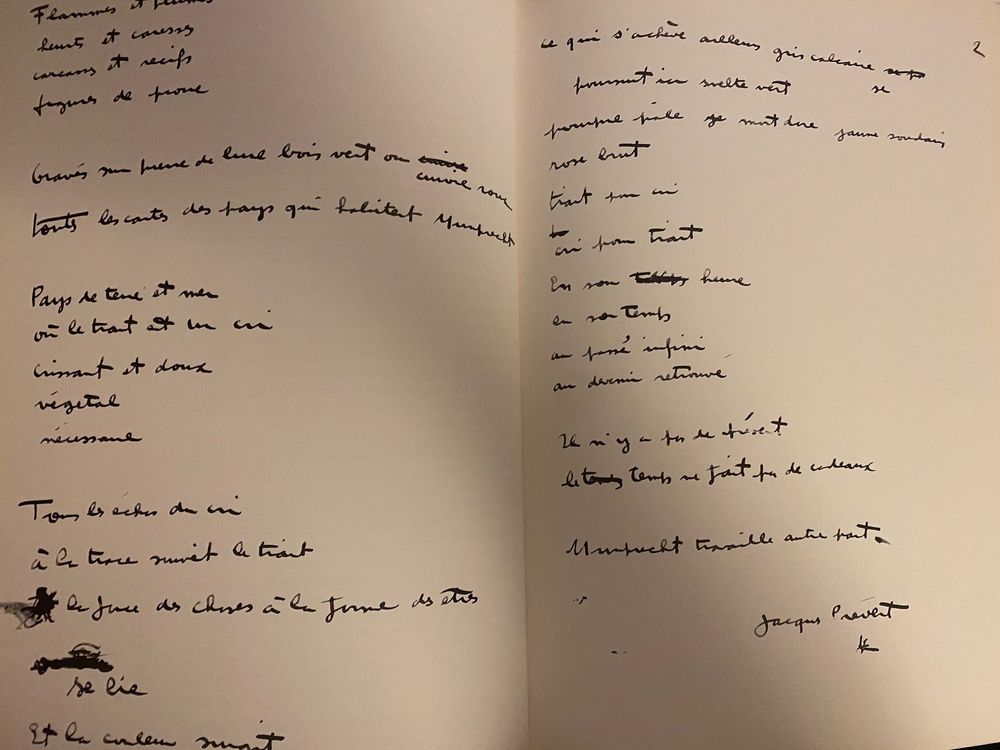 Flammes et plumes
heurts et caresses
carcasses et récifs
figures de proue
Gravés sur pierre de lune bois vert ou
cuivre rouge
touts les cartes des pays qui habitent Munprecht
Pays de terre et mer
où le trait est un cri
crissant et doux
végétal
nécessaire
Tous les échos du cri
à la trace suivent le trait
la face des choses à la forme des êtres
se lie
Et la couleur surgit
2
ce qui s'achève ailleurs gris calcaire
poursuit ici svelte vert se
pourpre pâle mordore jaune soudain
rose brut
trait pour cri
cri pour trait
En son heure
en son temps
au passé infini
au devenir retrouvé
Il n'y a pas de
le temps ne fait pas de cadeaux
Munprecht travaille autre part.
Jacques Prévert